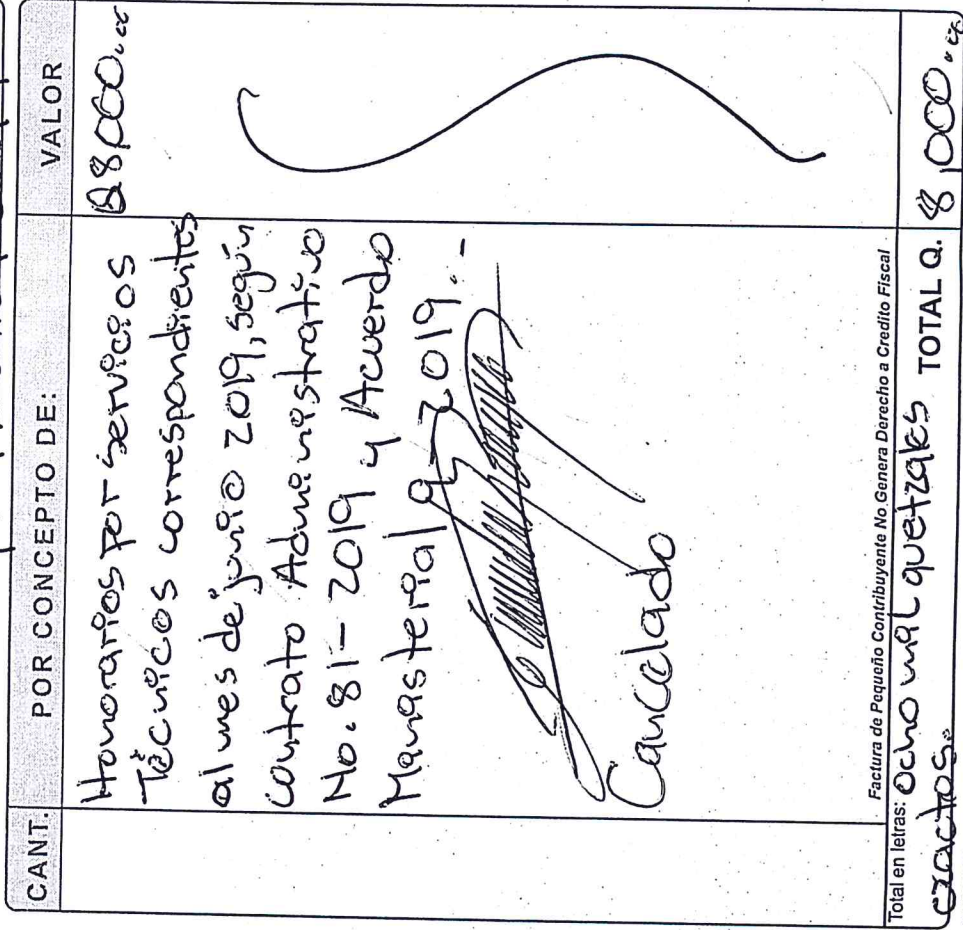 CANT. POR CONCEPTO DE: VALOR
Honorarios por servicios Q8,000.00
Técnicos correspondientes
al mes de junio 2019, según
contrato Administrativo
No. 81-2019 y Acuerdo
Ministerial 9-2019.-
Cancelado
Factura de Pequeño Contribuyente No Genera Derecho a Credito Fiscal
Total en letras: Ocho mil quetzales TOTAL Q. 8,000.00
exactos.